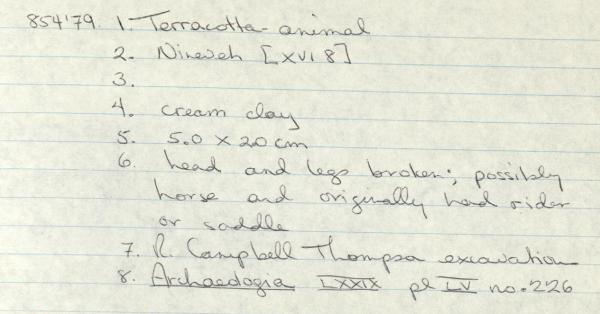 854'79. 1. Terracotta- animal
2. Nineveh [XVI 8]
3.
4. cream clay
5. 5.0 x 2.0 cm
6. head and legs broken; possibly
horse and originally had rider
or saddle
7. R. Campbell Thompson excavation
8. Archaeologia LXXIX pl LV no. 226